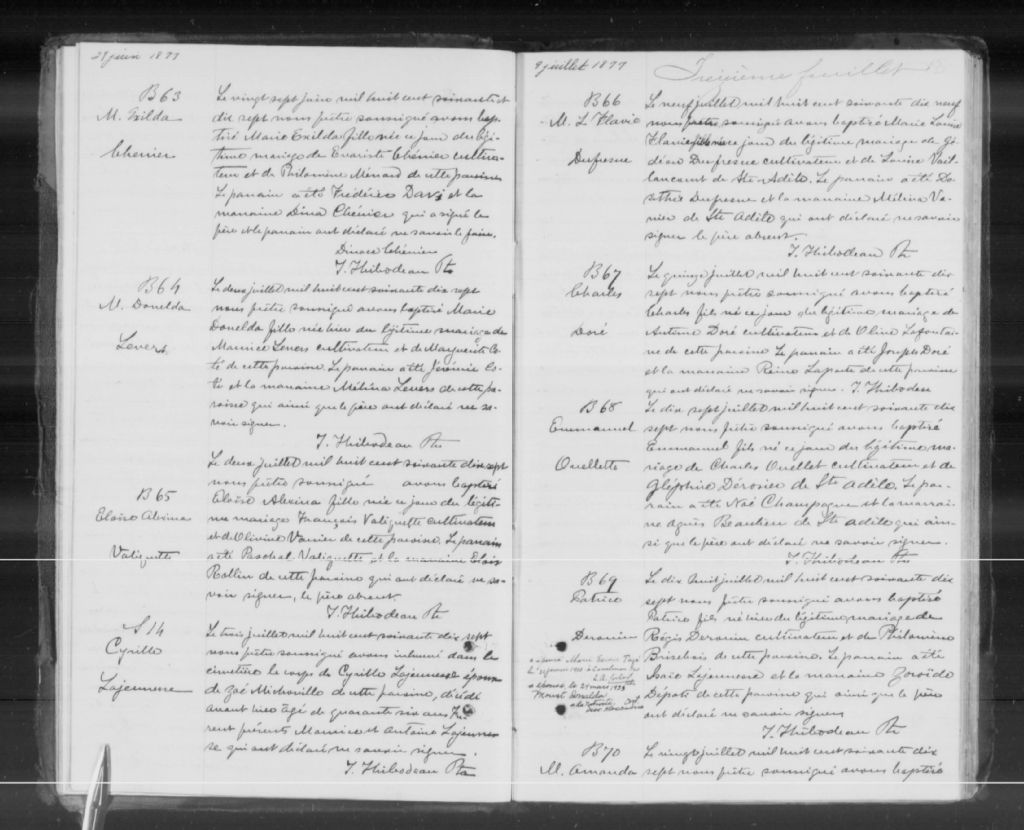 27 juin 1877
B63
M. Exilda
Chenier
Le vingt sept juin mil huit cent soixante et
dix sept nous prêtre soussigné avons bap-
tisé Marie Exilda fille née ce jour du légi-
time mariage de Evariste Chénier cultiva-
teur et de Philomène Ménard de cette paroisse
Le parrain a été Frédéric David et la
marraine Dina Chénier qui a signé le
père et le parrain ont déclaré ne savoir le faire.
Chénier
T. Thibodeau Ptre
B64
M. Donelda
Levers
Le deux juillet mil huit cent soixante dix sept
nous prêtre soussigné avons baptisé Marie
Donelda fille née hier du légitime mariage de
Maurice Levers cultivateur et de Marguerite Co-
té de cette paroisse. Le parrain a été Jérémie Co-
té et la marraine Mélina Levers de cette pa-
roisse qui ainsi que le père ont déclaré ne sa-
voir signer.
T. Thibodeau Ptre
B65
Eloïse Alexina
Valiquette
Le deux juillet mil huit cent soixante dix sept
nous prêtre soussigné avons baptisé
Eloïse Alexina fille née ce jour du légiti-
me mariage François Valiquette cultivateur
et de Olivine Vanier de cette paroisse. Le parrain
a été Paschal Valiquette et la marraine Eloïse
Rollin de cette paroisse qui ont déclaré ne sa-
voir signer, le père absent.
T. Thibodeau Ptre
S14
Cyrille
Lajeunesse
Le trois juillet mil huit cent soixante dix sept
nous prêtre soussigné avons inhumé dans le
cimetière le corps de Cyrille Lajeunesse époux
de Zoé Michauville de cette paroisse, décédé
avant hier âgé de quarante six ans Fu-
rent présents Maurice et Antoine Lajeunes-
se qui ont déclaré ne savoir signer.
T. Thibodeau Ptre
9 juillet 1877
Treizième feuillet
B66
M. L. Flavie
Dufresne
Le neuf juillet mil huit cent soixante dix neuf
nous prêtre soussigné avons baptisé Marie Louise
Flavie fille née ce jour du légitime mariage de Gé-
déon Dufresne cultivateur et de Louise Vail-
lancourt de Ste Adèle. Le parrain a été Do-
sithée Dufresne et la marraine Mélina Va-
nier de Ste Adèle qui ont déclaré ne savoir
signer le père absent.
T. Thibodeau Ptre
B67
Charles
Doré
Le quinze juillet mil huit cent soixante dix
sept nous prêtre soussigné avons baptisé
Charles fils né ce jour du légitime mariage de
Antoine Doré cultivateur et de Olive Lafontai-
ne de cette paroisse Le parrain a été Joseph Doré
et la marraine Reine Laporte de cette paroisse
qui ont déclaré ne savoir signer. T. Thibodeau
B68
Emmanuel
Ouellette
Le dix sept juillet mil huit cent soixante dix
sept nous prêtre soussigné avons baptisé
Emmanuel fils né ce jour du légitime ma-
riage de Charles Ouellet cultivateur et de
Zéphire Dérosier de Ste Adèle. Le par-
rain a été Noé Champagne et la marrai-
ne Agnès Beaulieu de Ste Adèle qui ain-
si que le père ont déclaré ne savoir signer.
T. Thibodeau Ptre
B69
Patrice
Derouin
Le dix huit juillet mil huit cent soixante dix
sept nous prêtre soussigné avons baptisé
Patrice fils né hier du légitime mariage de
Régis Derouin cultivateur et de Philomène
Brisebois de cette paroisse. Le parrain a été
Isaïe Lajeunesse et la marraine Zoraïde
Dépoté de cette paroisse qui ainsi que le père
ont déclaré ne savoir signer
T. Thibodeau Ptre
B70
M. Amanda
Le vingt juillet mil huit cent soixante dix
sept nous prêtre soussigné avons baptisé